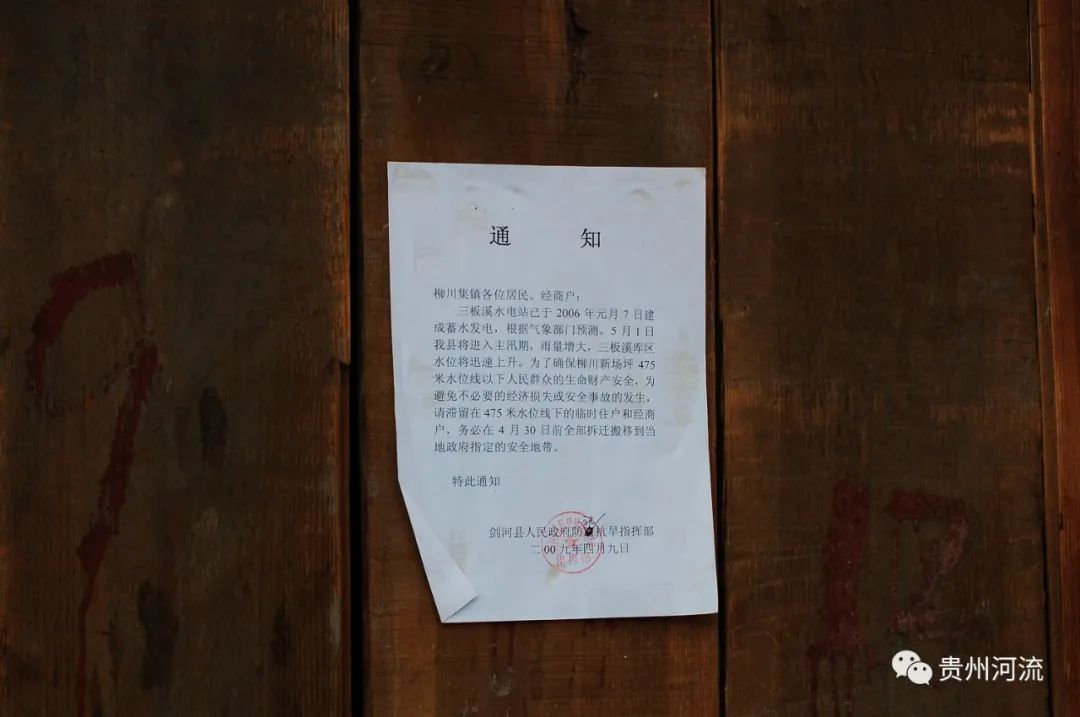 通 知
柳川集镇各位居民、经商户：
三板溪水电站已于 2006 年元月 7 日建
成蓄水发电，根据气象部门预测，5 月 1 日
我县将进入主汛期，雨量增大，三板溪库区
水位将迅速上升。为了确保柳川新场坪 475
米水位线以下人民群众的生命财产安全，为
避免不必要的经济损失或安全事故的发生，
请滞留在 475 米水位线下的临时住户和经商
户，务必在 4 月 30 日前全部拆迁搬移到当
地政府指定的安全地带。
特此通知
剑河县人民政府防汛抗旱指挥部
二00九年四月九日
指挥部
9
12
贵州河流